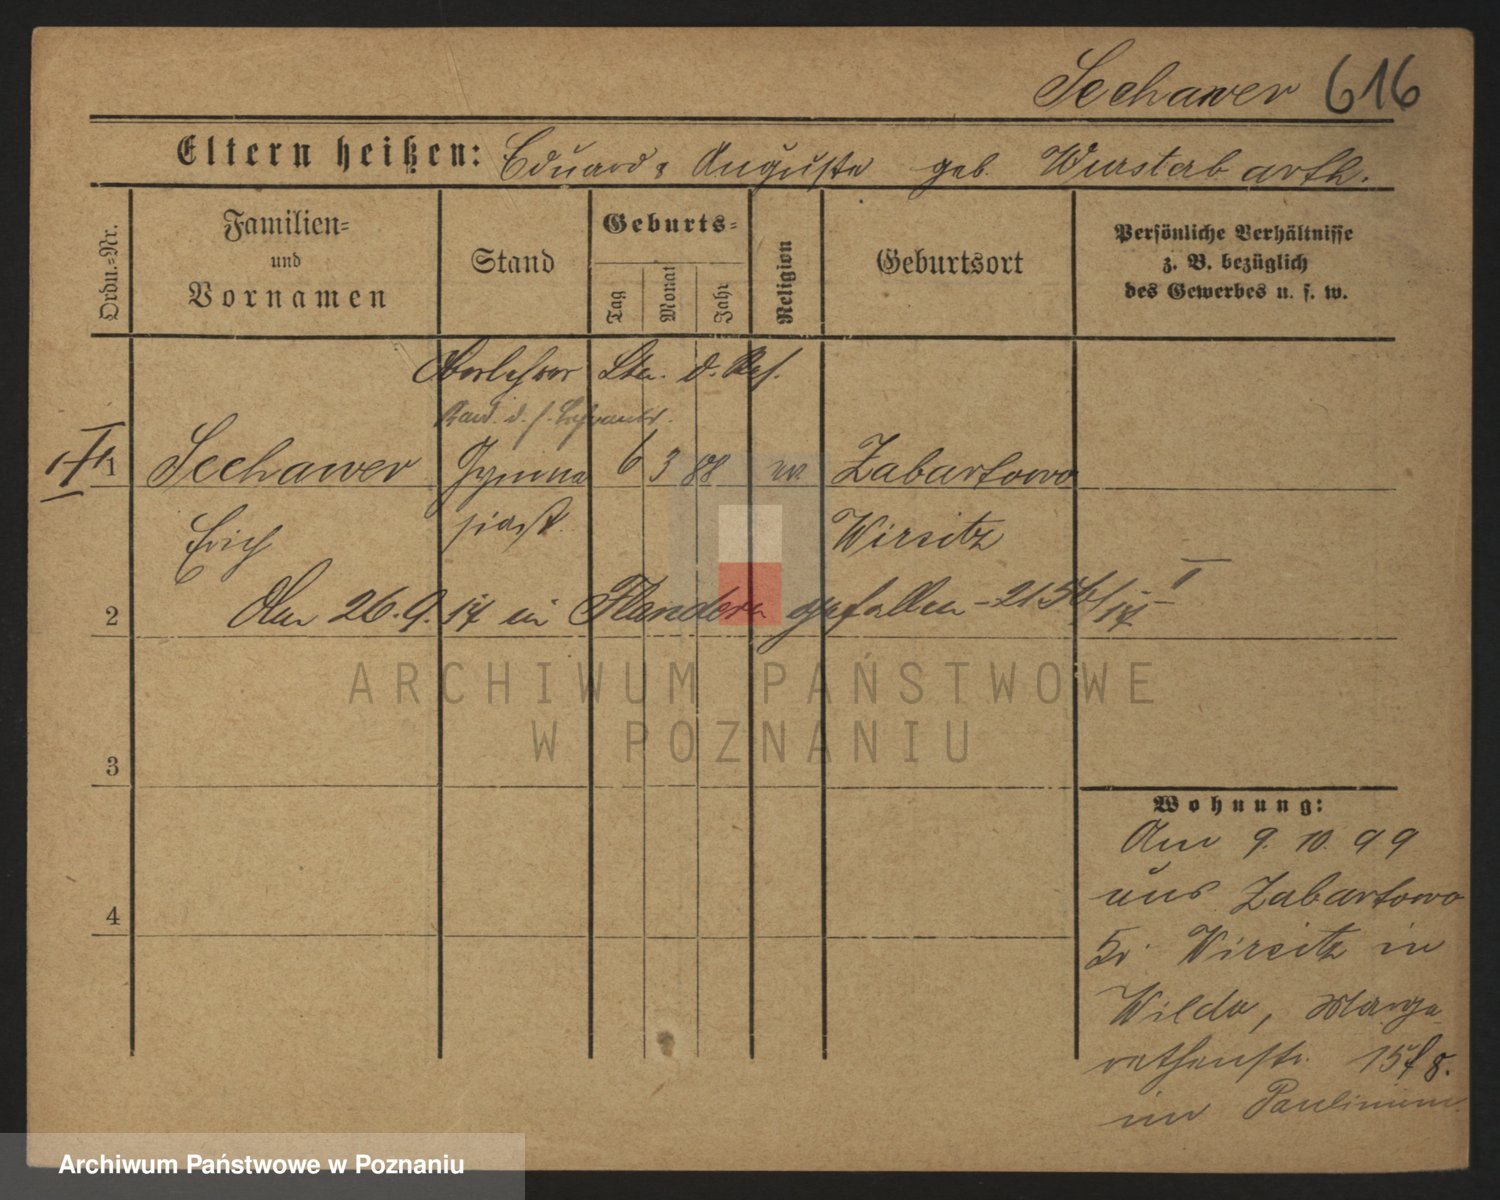 Seehawer 616
Eltern heißen: Eduard & Auguste geb. Wurstab arth.
Ordn.=Nr.
Familien=
und
Vornamen
Stand
Geburts=
Tag
Monat
Jahr
Religion
Geburtsort
Persönliche Verhältnisse
z. B. bezüglich
des Gewerbes u. s. w.
Oberlehrer Ltn. d. Res.
Kand. d. h. Lehramts.
1 Seehawer Gymna 6 3 88 Zabartowo
Erich siast. Wirsitz
2 Am 26.9.17 in Flandern gefallen - 2156/17 - II
3
Wohnung:
Am 9. 10. 99
aus Zabartowo
4
Kr. Wirsitz in
Wilda, Marga
rethenstr. 15
im Paulinum.
ARCHIWUM PAŃSTWOWE
W POZNANIU
Archiwum Państwowe w Poznaniu